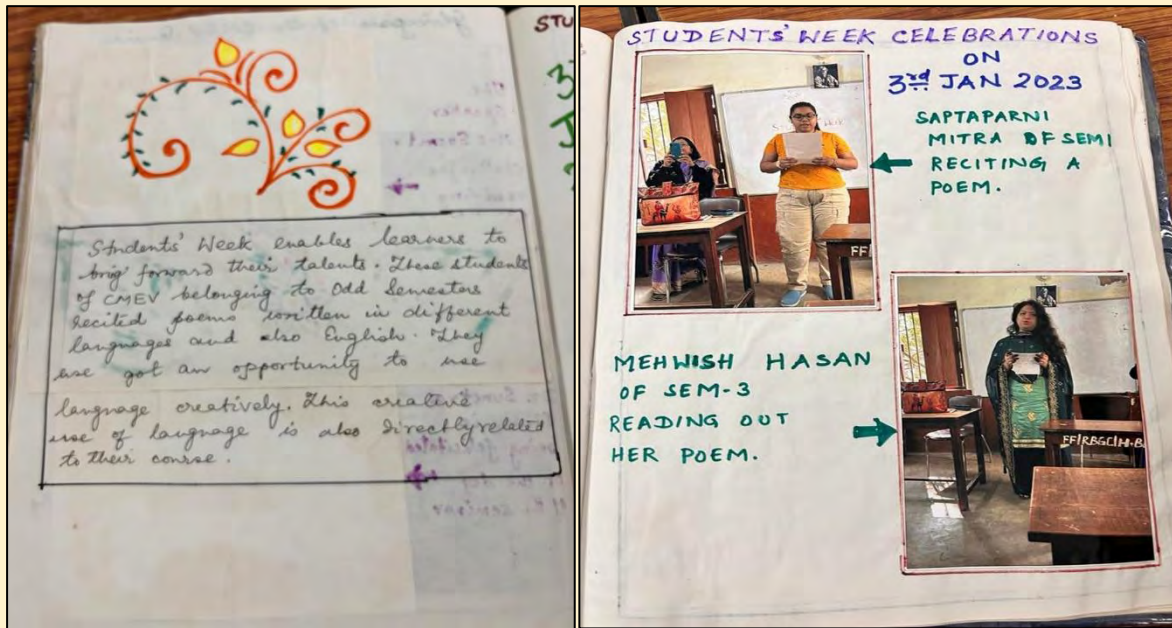 STU
3
J
Students' Week enables learners to
brig forward their talents. These students
of CMEV belonging to Odd Semesters
recited poems written in different
languages and also English. They
use got an opportunity to use
language creatively. This creative
use of language is also directly related
to their course.
STUDENTS' WEEK CELEBRATIONS
ON
3rd JAN 2023
SAPTAPARNI
MITRA OF SEM I
RECITING A
POEM.
FF
MEHWISH HASAN
OF SEM-3
READING OUT
HER POEM.
FF/RBGC/H.B